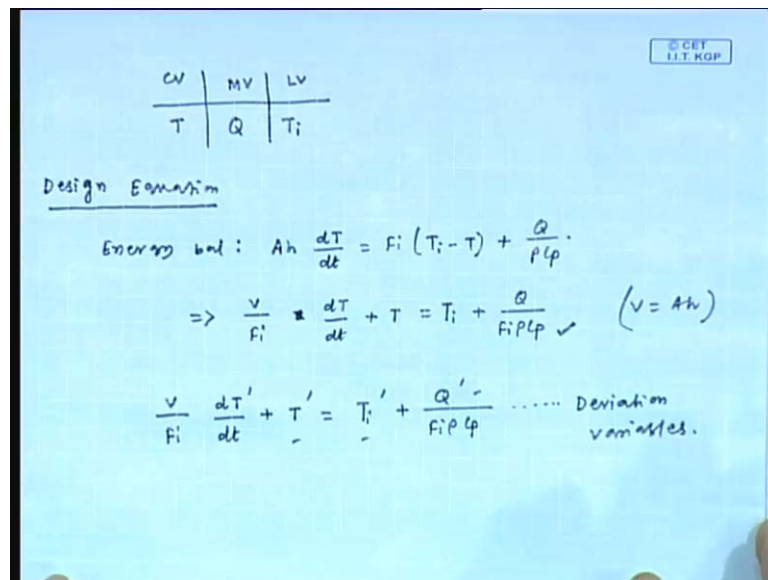 © CET
I.I.T. KGP
CV | MV | LV
T | Q | Ti
Design Equation
Energy bal : Ah dT/dt = Fi (Ti - T) + Q/ρCp.
=> V/Fi dT/dt + T = Ti + Q/FiρCp ✓ (V = Ah)
V/Fi dT'/dt + T' = Ti' + Q'/FiρCp ...... Deviation
variables.